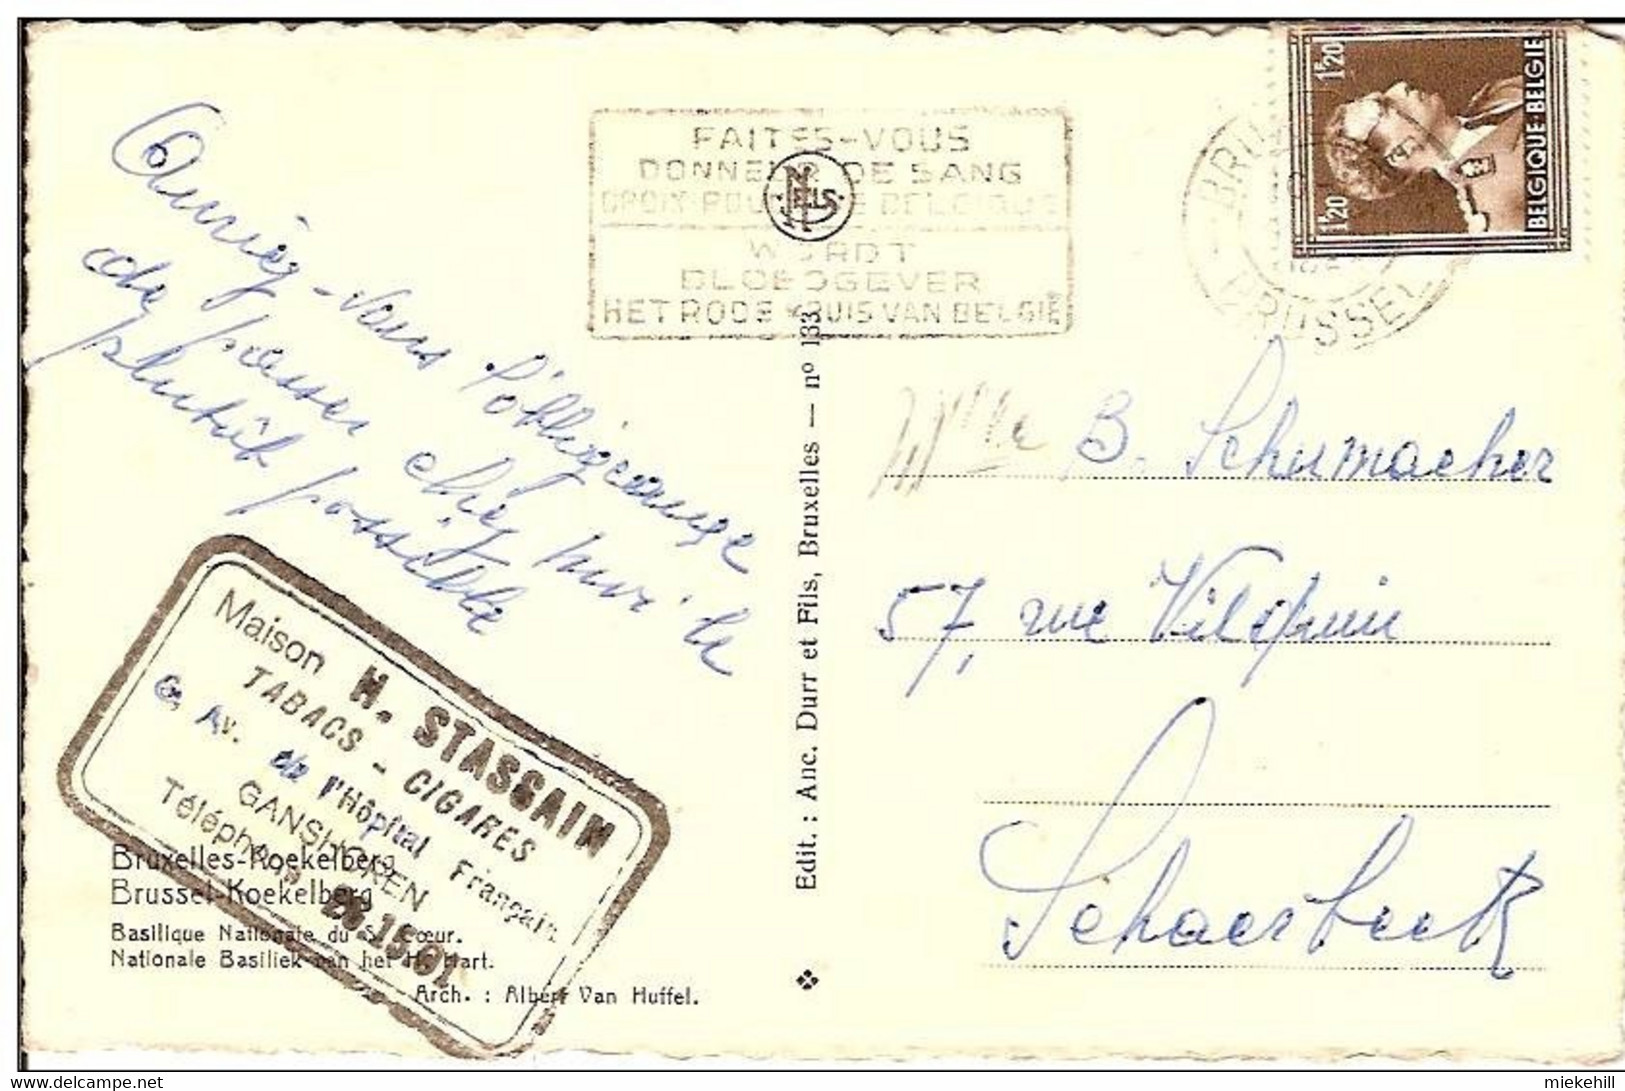 Auriez-vous l'obligeance
de passer chez moi le
plutôt possible
Maison H. STASSAIN
TABACS - CIGARES
Av. de l'Hôpital Français
GANSHOREN
Téléphone 26.15.01
Bruxelles-Koekelberg
Brussel-Koekelberg
Basilique Nationale du S. Cœur.
Nationale Basiliek van het H. Hart.
Arch. : Albert Van Huffel.
FAITES-VOUS
DONNEUR DE SANG
CROIX-ROUGE DE BELGIQUE
WORDT
BLOEDGEVER
HET RODE KRUIS VAN BELGIË
NELS
Edit. : Anc. Durr et Fils, Bruxelles — nº 133.
BRUSSEL
1F20
1F20
BELGIQUE-BELGIE
Mme B. Schumacher
57, rue Vilquin
Schaerbeek
miekehill